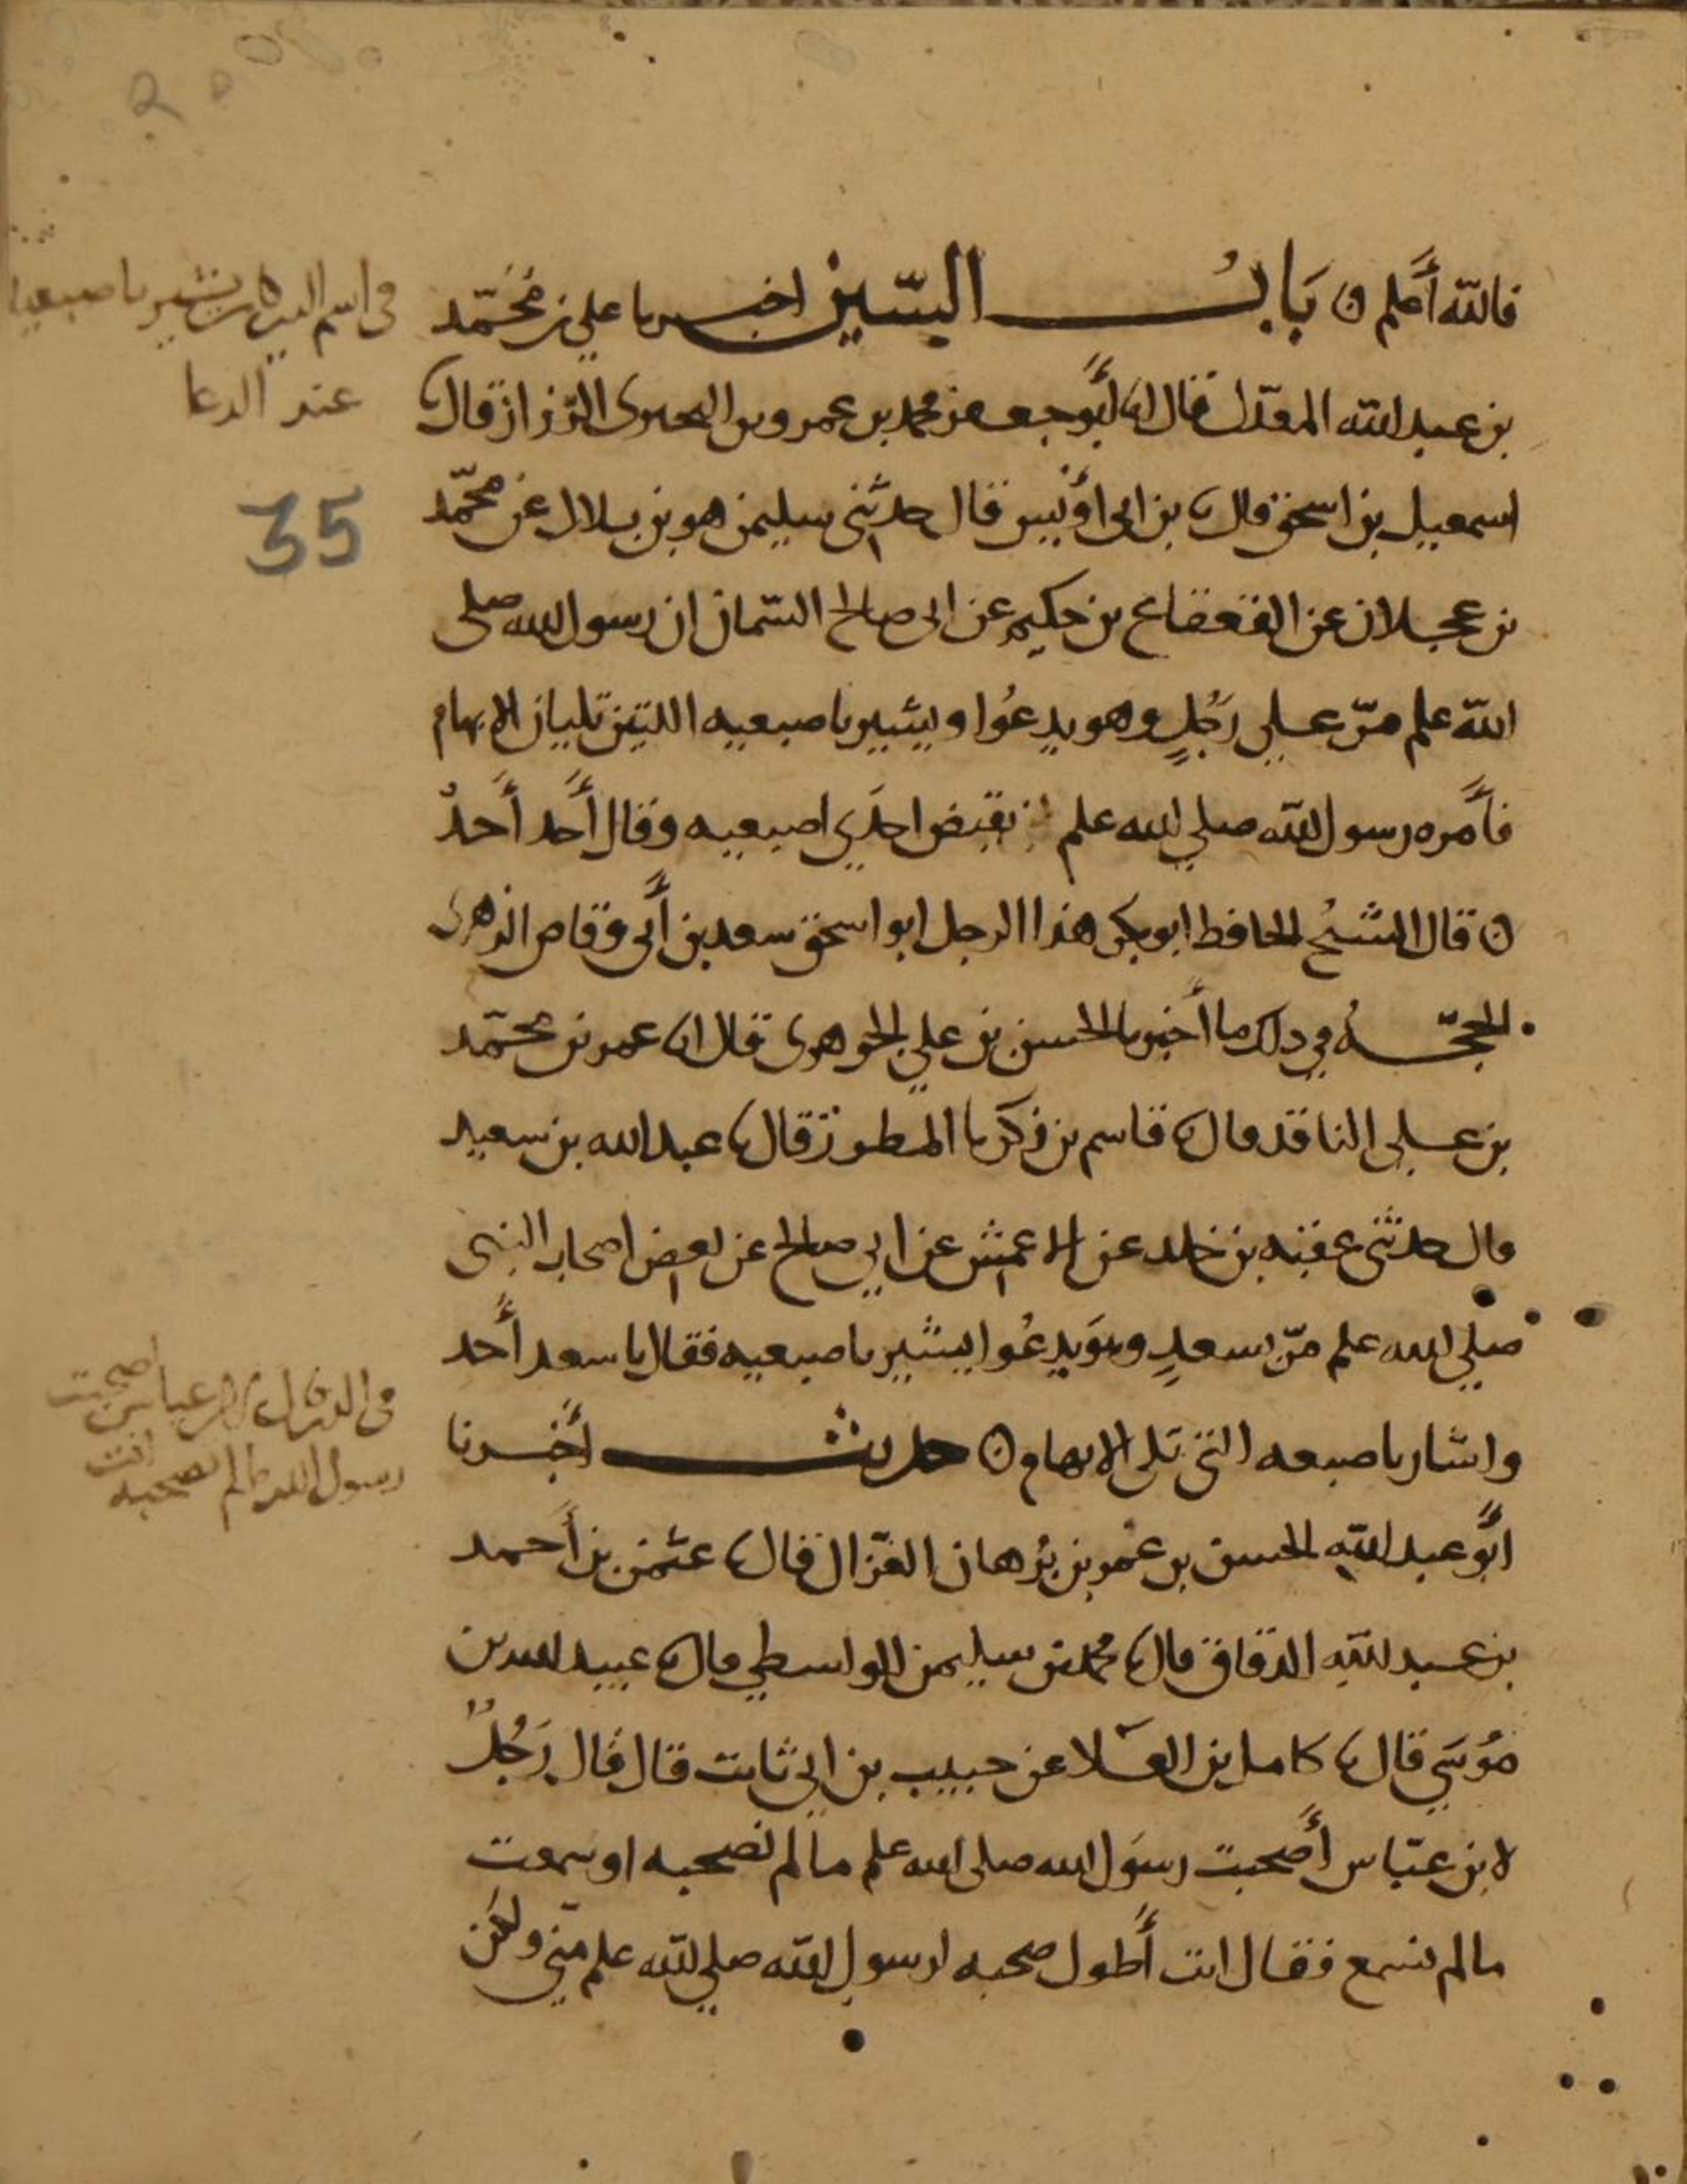 فالله أعلم ۞ بَابُ السّين اخبرنا علي بن محمّد
بن عبد الله المعدّل قال انا أبو جعفر محمد بن عمرو بن البحتري الرّزاز قال نا
اسمعيل بن اسحق قال نا بن ابى أويس قال حدثنى سليمن هو بن بلال عن محمّد
بن عجلان عن القعقاع بن حكيم عن ابى صالح السّمان ان رسول الله صلى
الله علم مرّ على رَجُلٍ وهو يدعُوا ويشير باصبعيه اللتين تليان الابهام
فأمره رسول الله صلي الله علم ان تقبض احدَي اصبعيه وقال أحد أحدٌ
۞ قال الشيخُ الحافظ ابو بكر هذا الرجل ابو اسحق سعد بن أبى وقاص الزهرى
الحجّةُ في ذلك ما أخبرنا الحسن بن علي الجوهرى قال انا عمر بن محمّد
بن على الناقد قال نا قاسم بن زكريا المطرز قال نا عبد الله بن سعيد
قال حدثنى عقبه بن خلد عن الاعمش عن ابي صالح عن بعض اصحاب النبى
صلي الله علم مرّ بسعدٍ وهوَ يدعُوا يشير باصبعيه فقال يا سعد أحد
واشار باصبعه التي تلى الابهام ۞ حديث أخبرنا
أبو عبد الله الحسين بن عُمر بن بُرهان الغزّال قال نا عثمن بن أحمد
بن عبد الله الدقاق قال نا محمد بن سليمن الواسطي قال نا عبيد الله بن
مُوسَي قال نا كامل بن العَلا عن حبيب بن ابي ثابت قال قال رَجُلٌ
لابن عبّاس أصحبت رسوَل الله صلى الله علم ما لم نصحبه او سمعت
ما لم نسمع فقال انت أطول صحبه لرسول الله صلي الله علم منّي ولكن
فى اسم الذى كان يشير باصبعيه
عند الدعا
35
فى الذى قال لابن عباس أصحبت
رسول الله ما لم نصحبه